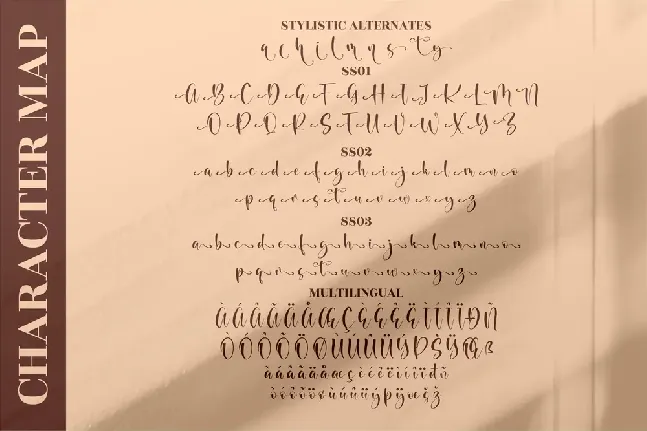 CHARACTER MAP
STYLISTIC ALTERNATES
a c h i l m n s t y
SS01
A B C D E F G H I J K L M N
O P Q R S T U V W X Y Z
SS02
a b c d e f g h i j k l m n o
p q r s t u v w x y z
SS03
a b c d e f g h i j k l m n o
p q r s t u v w x y z
MULTILINGUAL
À Á Â Ã Ä Å Æ Ç È É Ê Ë Ì Í Î Ï Ð Ñ
Ò Ó Ô Õ Ö Ø Ù Ú Û Ü Ý Þ Š Ÿ Œ ß
à á â ã ä å æ ç è é ê ë ì í î ï đ õ